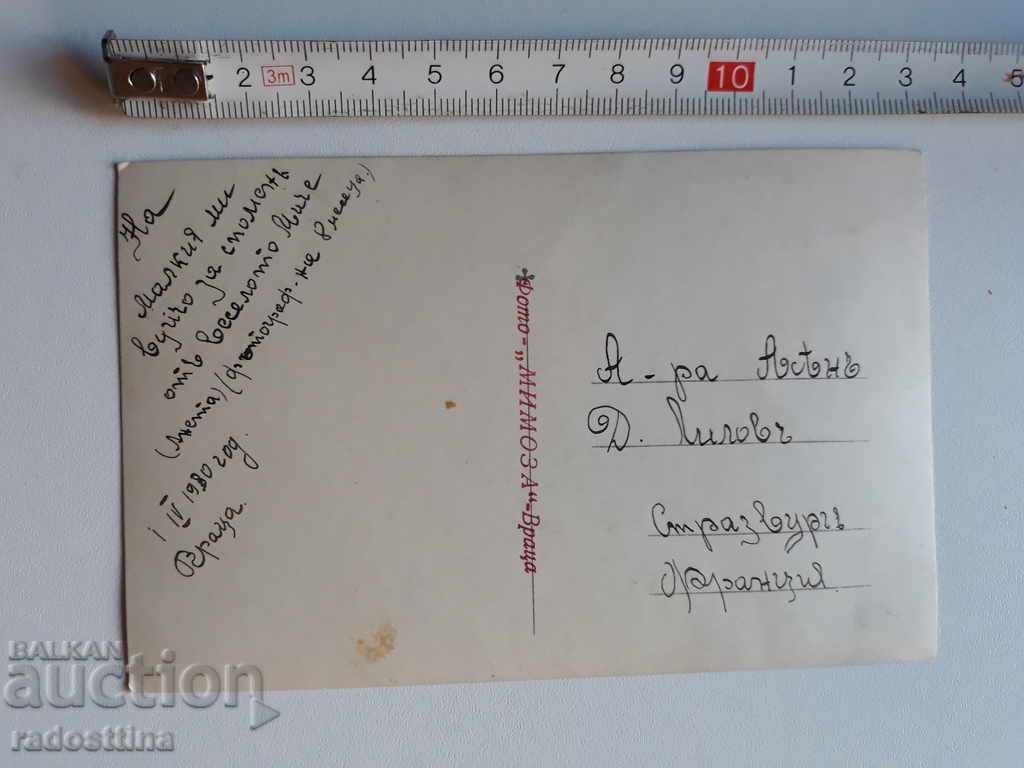 2 3m 3 4 5 6 7 8 9 10 1 2 3 4 5
На
малкия ми
вуйчо за споменъ
отъ веселото Миче
(Анета) (фотограф. на 8 месеца.)
1 IV 1930 год.
Враца.
Фото-„МИМОЗА“-Враца
Д-ра Асѣнъ
Д. Хиловъ
Стразбургъ
Франция.
BALKAN
auction
radosttina